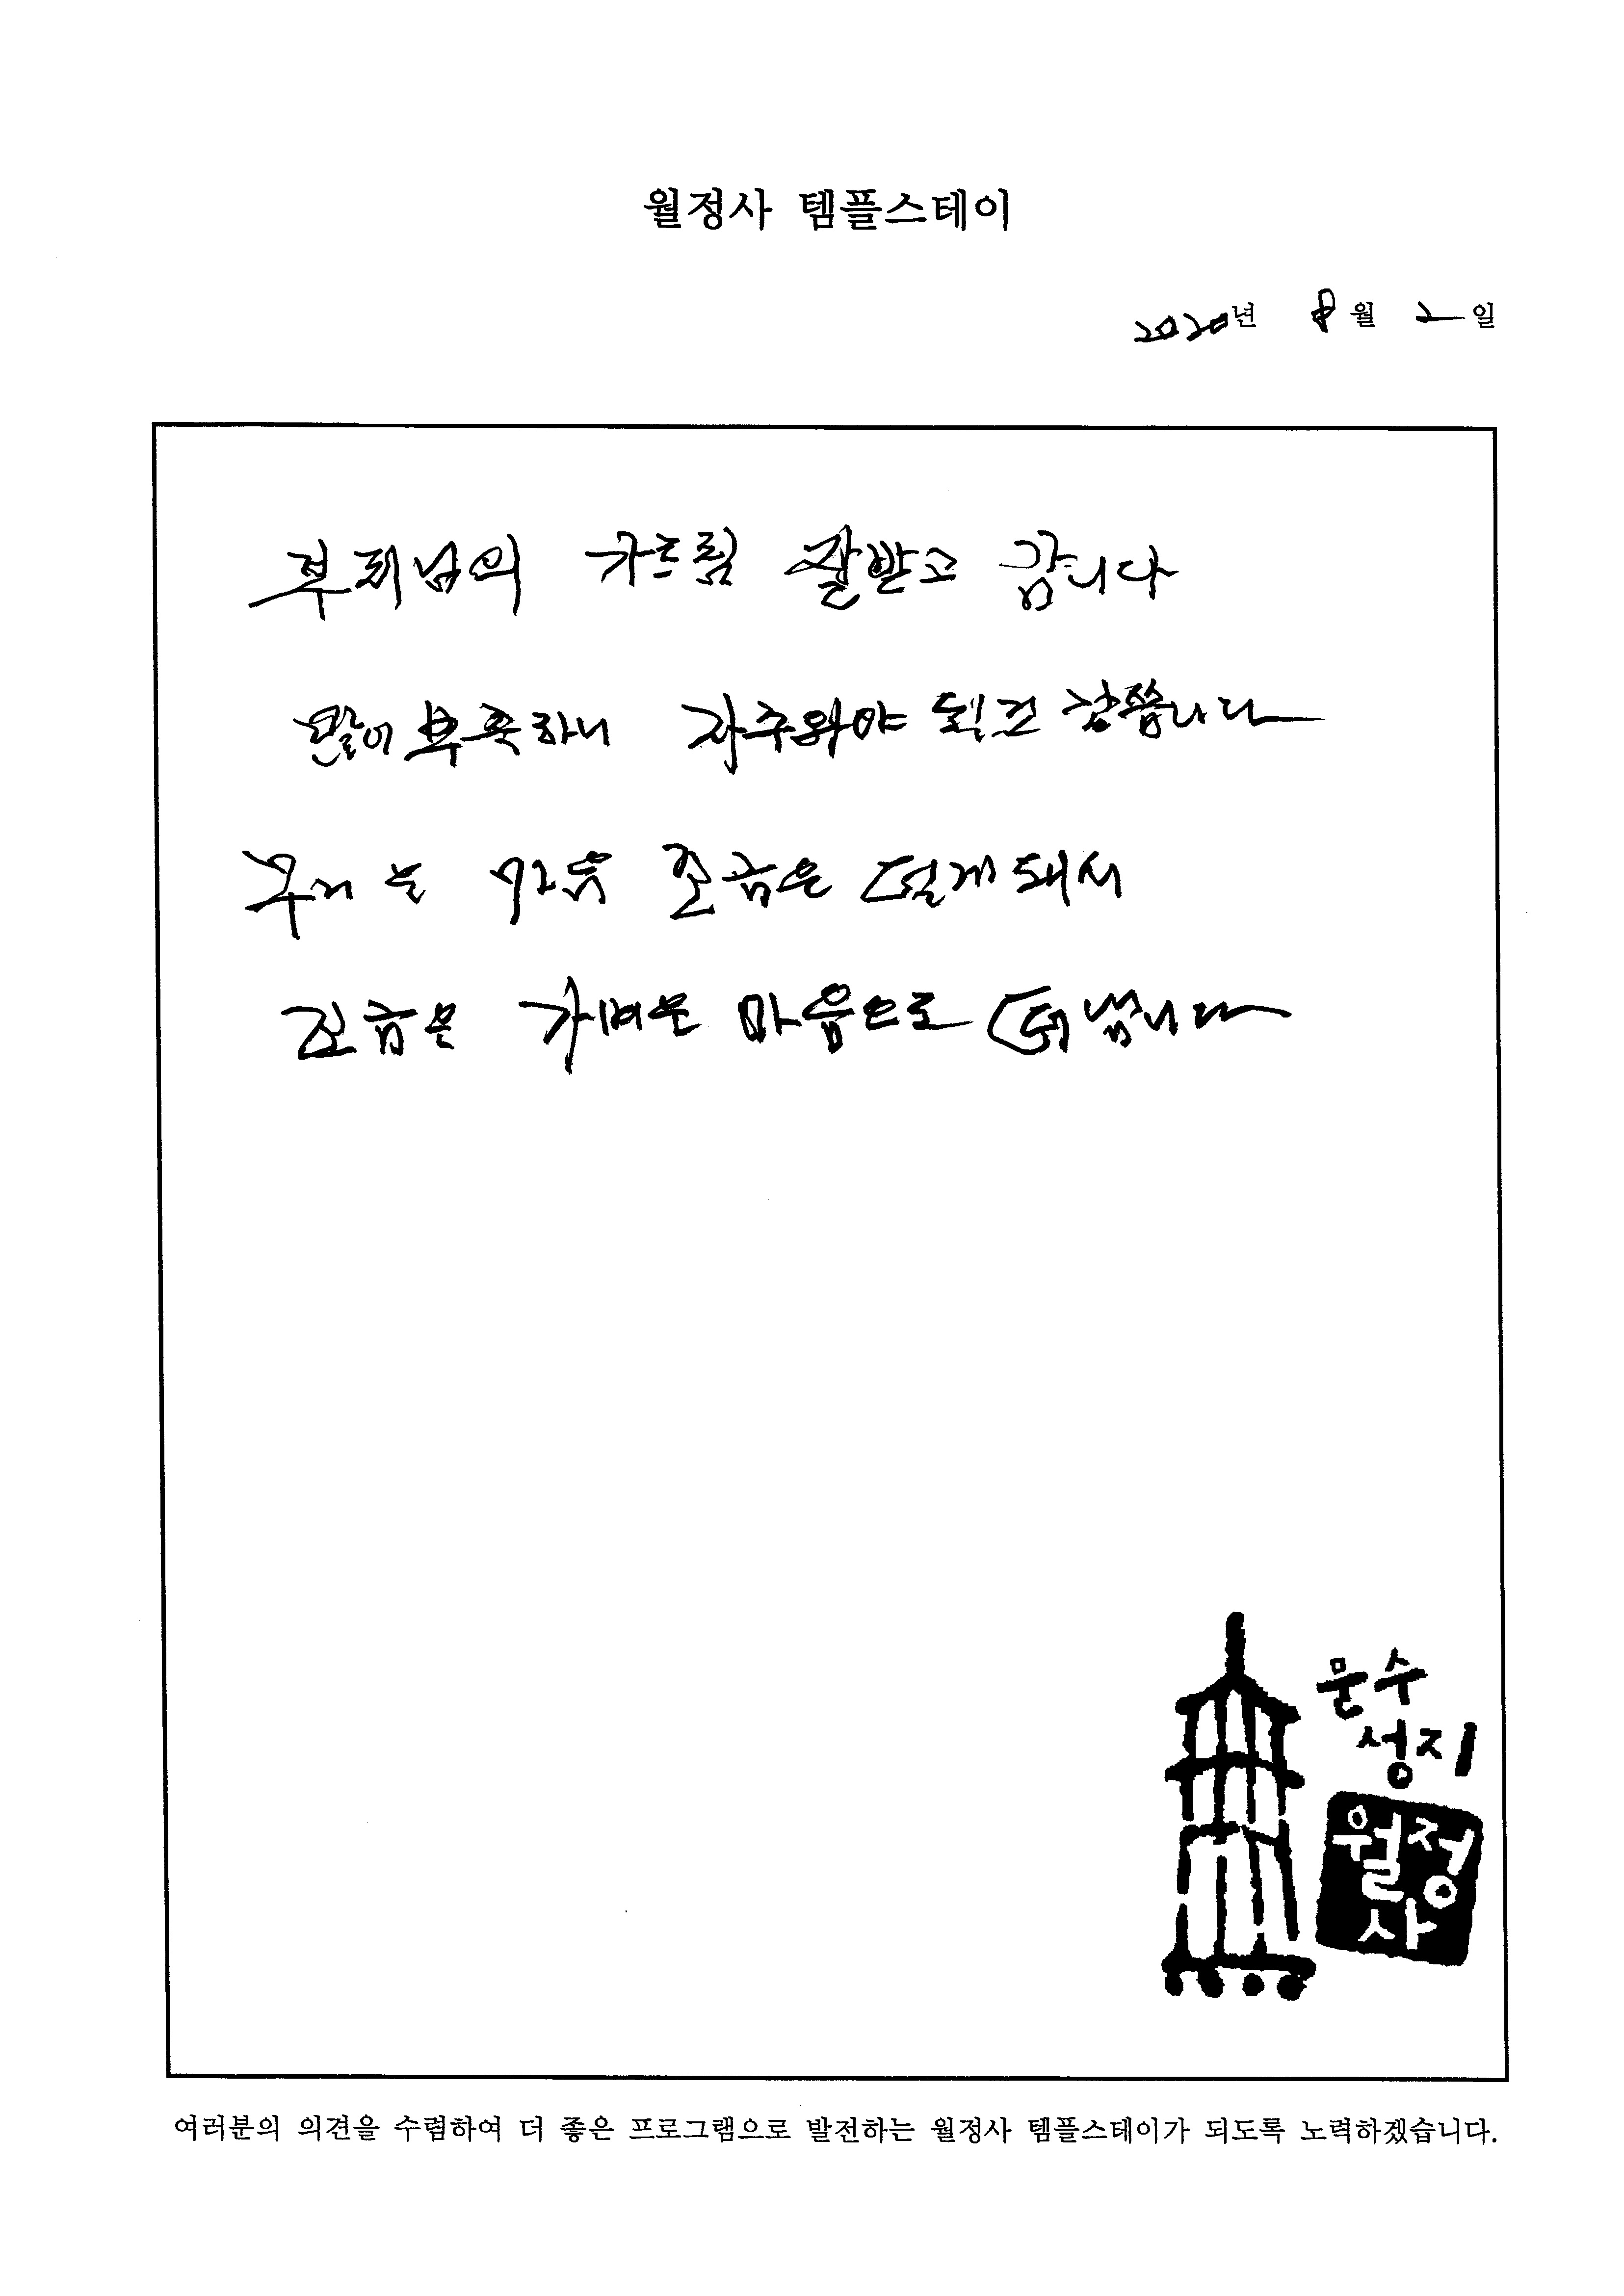 월정사 템플스테이
2020년 8월 2일
부처님의 가르림 잘받고 갑니다
많이 부족하니 자주와야 될것 같씁니다
무거는 마음 조금은 덜게되서
조금은 가벼운 마음으로 떠납니다
문수
성지
월정
사
여러분의 의견을 수렴하여 더 좋은 프로그램으로 발전하는 월정사 템플스테이가 되도록 노력하겠습니다.